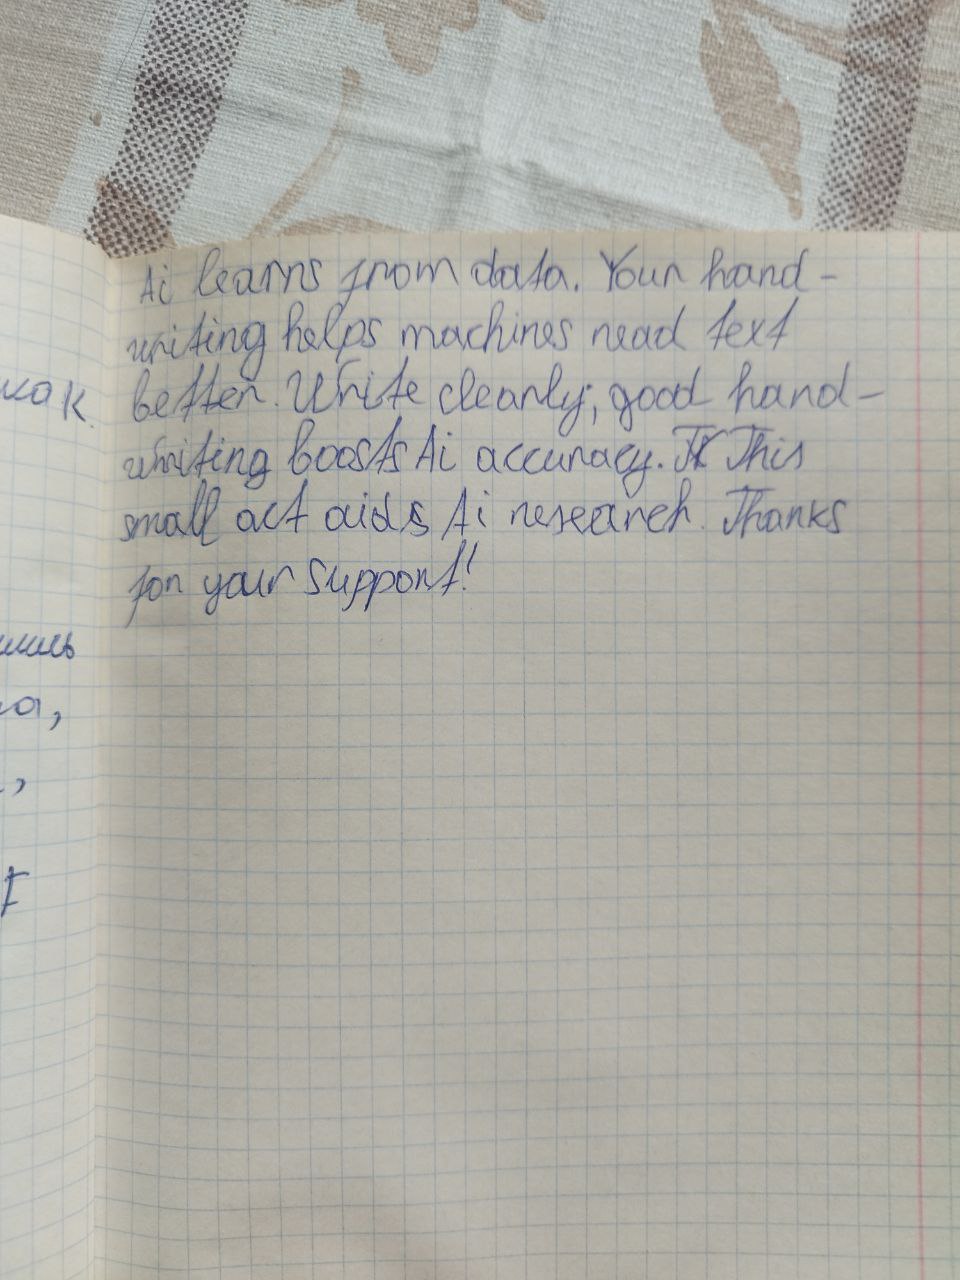 Ai learns from data. Your hand-
writing helps machines read text
better. Write cleanly; good hand-
writing boosts Ai accuracy. This
small act aids Ai research. Thanks
for your support!
как.
лись
а,
,